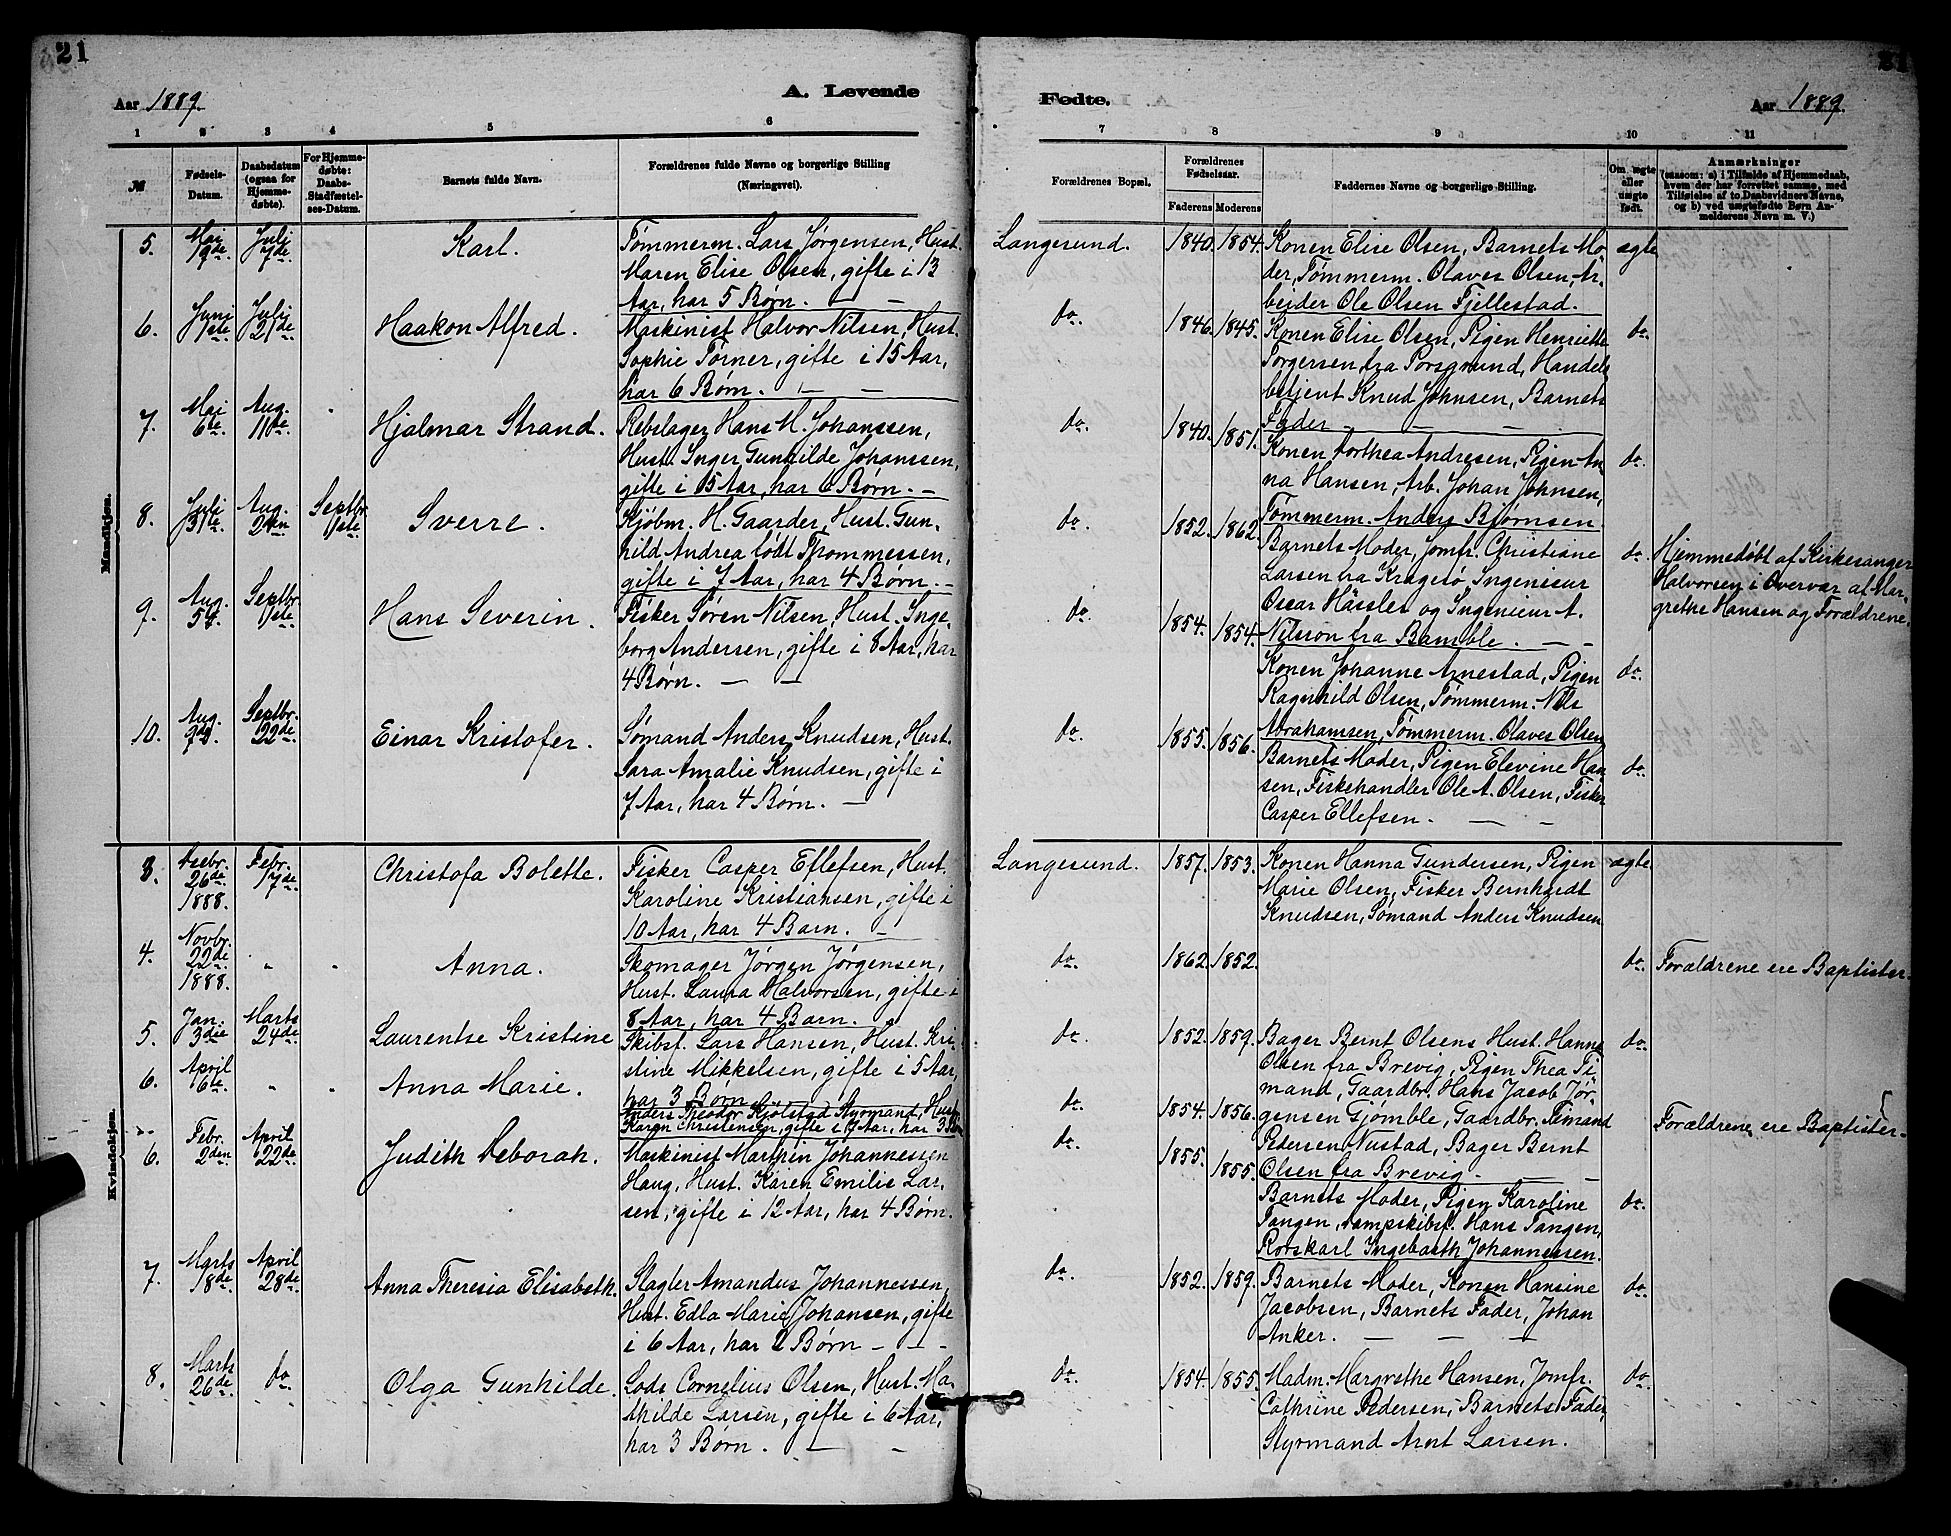 21
Aar 1889.
A. Levende
1 2 3 4 5 6
№
Fødsels-
Datum.
Daabsdatum
(ogsaa for
Hjemme-
døbte).
For Hjemme-
døbte:
Daabs-
Stadfæstel-
ses-Datum.
Barnets fulde Navn.
Forældrenes fulde Navne og borgerlige Stilling
(Næringsvei).
Mandkjøn.
5. Mai 19de Juli 7de Karl.
Tømmerm. Lars Jørgensen, Hust.
Maren Elise Olsen, gifte i 13
Aar, har 5 Børn. — —
6. Juni 1ste Juli 21de Haakon Alfred.
Maskinist Halvor Nilsen, Hust.
Sophie Tørner, gifte i 15 Aar,
har 6 Børn. — —
7. Mai 6te Aug. 11de Hjalmar Strand.
Rebslager Hans M. Johanssen,
Hust. Inger Gunhilde Johanssen,
gifte i 15 Aar, har 6 Børn. —
8. Juli 31te Aug. Septbr. 1ste Sverre.
Kjøbm. H. Gaarder, Hust. Gun-
hild Andrea født Thommessen,
gifte i 7 Aar, har 4 Børn. —
9. Aug. Septbr. 1ste Hans Severin.
Fisker Søren Nilsen, Hust. Inge-
borg Andersen, gifte i 8 Aar, har
4 Børn. — —
10. Aug. Septbr. 22de Einar Kristofer.
Sømand Anders Knudsen, Hust.
Sara Amalie Knudsen, gifte i
7 Aar, har 4 Børn. —
Kvindekjøn.
3. Desbr. 26de 1888. Febr. 17de Christofa Bolette.
Fisker Casper Ellefsen, Hust.
Karoline Kristiansen, gifte i
10 Aar, har 4 Barn. —
4. Novbr. 22de 1888. " " Anna.
Skomager Jørgen Jørgensen,
Hust. Laura Halvorsen, gifte i
8 Aar, har 4 Barn.
5. Jan. 3die Marts 24de Laurentse Kristine
Skibsf. Lars Hansen, Hust. Kri-
stine Mikkelsen, gifte i 5 Aar,
har 3 Børn
6. April 6te " " Anna Marie.
Anders Theodor Kjølstad Styrmand, Hust.
Karen Christensen, gifte i Aar, har 3 Børn
6. Febr. 2den April 22de Judith Deborah.
Maskinist Marthin Johannessen
Haug, Hust. Karen Emilie Lar-
sen, gifte i 12 Aar, har 4 Børn.
7. Marts 18de April 28de Anna Theresia Elisabeth.
Slagter Amandus Johannessen,
Hust. Edla Marie Johansen, gifte
i 6 Aar, har 2 Børn — — —
8. Marts 26de do Olga Gunhilde.
Lods Cornelius Olsen, Hust. Ma-
thilde Larsen, gifte i 6 Aar,
har 3 Børn. — —
21
Fødte.
Aar 1889.
7 8 9 10 11
Forældrenes Bopæl.
Forældrenes
Fødselsaar.
Faderens Moderens
Faddernes Navne og borgerlige Stilling.
Om ægte
eller
uægte
født.
Anmærkninger
(saasom: a) i Tilfælde af Hjemmedaab,
hvem der har forrettet samme, med
Tilføielse af to Daabsvidners Navne,
og b) ved uægtefødte Børn An-
melderens Navn m. V.)
Langesund. 1840. 1854. Konen Elise Olsen, Barnets Mo- ægte
der, Tømmerm. Olaves Olsen, Ar-
beider Ole Olsen Fjellestad.
do. 1846. 1845. Konen Elise Olsen, Pigen Henriette do.
Torgersen fra Porsgrund, Handels-
betjent Knud Johnsen, Barnets
Fader — — —
do. 1840. 1851. Konen Dorthea Andresen, Pigen An- do.
na Hansen, Arb. Johan Johnsen,
Tømmerm. Anders Bjørnsen.
do. 1852. 1862. Barnets Moder, Jomfr. Christiane do.
Larsen fra Kragerø, Ingenieur
Oscar Hässler og Ingenieur A.
Nilsson fra Bamble. — —
Hjemmedøbt af Kirkesanger
Halvorsen i Overvær af Mar-
grethe Hansen og Forældrene.
do. 1854. 1854. Konen Johanne Arnestad, Pigen do.
Ragnhild Olsen, Tømmerm. Nils
Abrahamsen, Tømmerm. Olaves Olsen
do. 1855. 1856. Barnets Moder, Pigen Elevine Han- do.
sen, Fiskehandler Ole A. Olsen, Fisker
Casper Ellefsen. — —
Langesund. 1857. 1853. Konen Hanna Gundersen, Pigen ægte
Marie Olsen, Fisker Bernhardt
Knudsen, Sømand Anders Knudsen
do. 1862. 1852. do. Forældrene ere Baptister.
do. 1852. 1859. Bager Bernt Olsens Hust. Hanna do.
Olsen fra Brevig, Pigen Thea Ti-
mand, Gaardbr. Hans Jacob Jør-
gensen Gjømble, Gaardbr. Timand
Pedersen Nustad, Bager Bernt
Olsen fra Brevig. — —
do. 1854. 1856. Forældrene ere Baptister.
do. 1855. 1855. Barnets Moder, Pigen Karoline do.
Tangen, Dampskibsf. Hans Tangen,
Rorskarl Ingebarth Johannessen.
do. 1852. 1859. Barnets Moder, Konen Hansine do.
Jacobsen, Barnets Fader, Johan
Anker. — — —
do. 1854. 1855. Madm. Margrethe Hansen, Jomfr. do.
Cathrine Pedersen, Barnets Fader,
Styrmand Arnt Larsen.